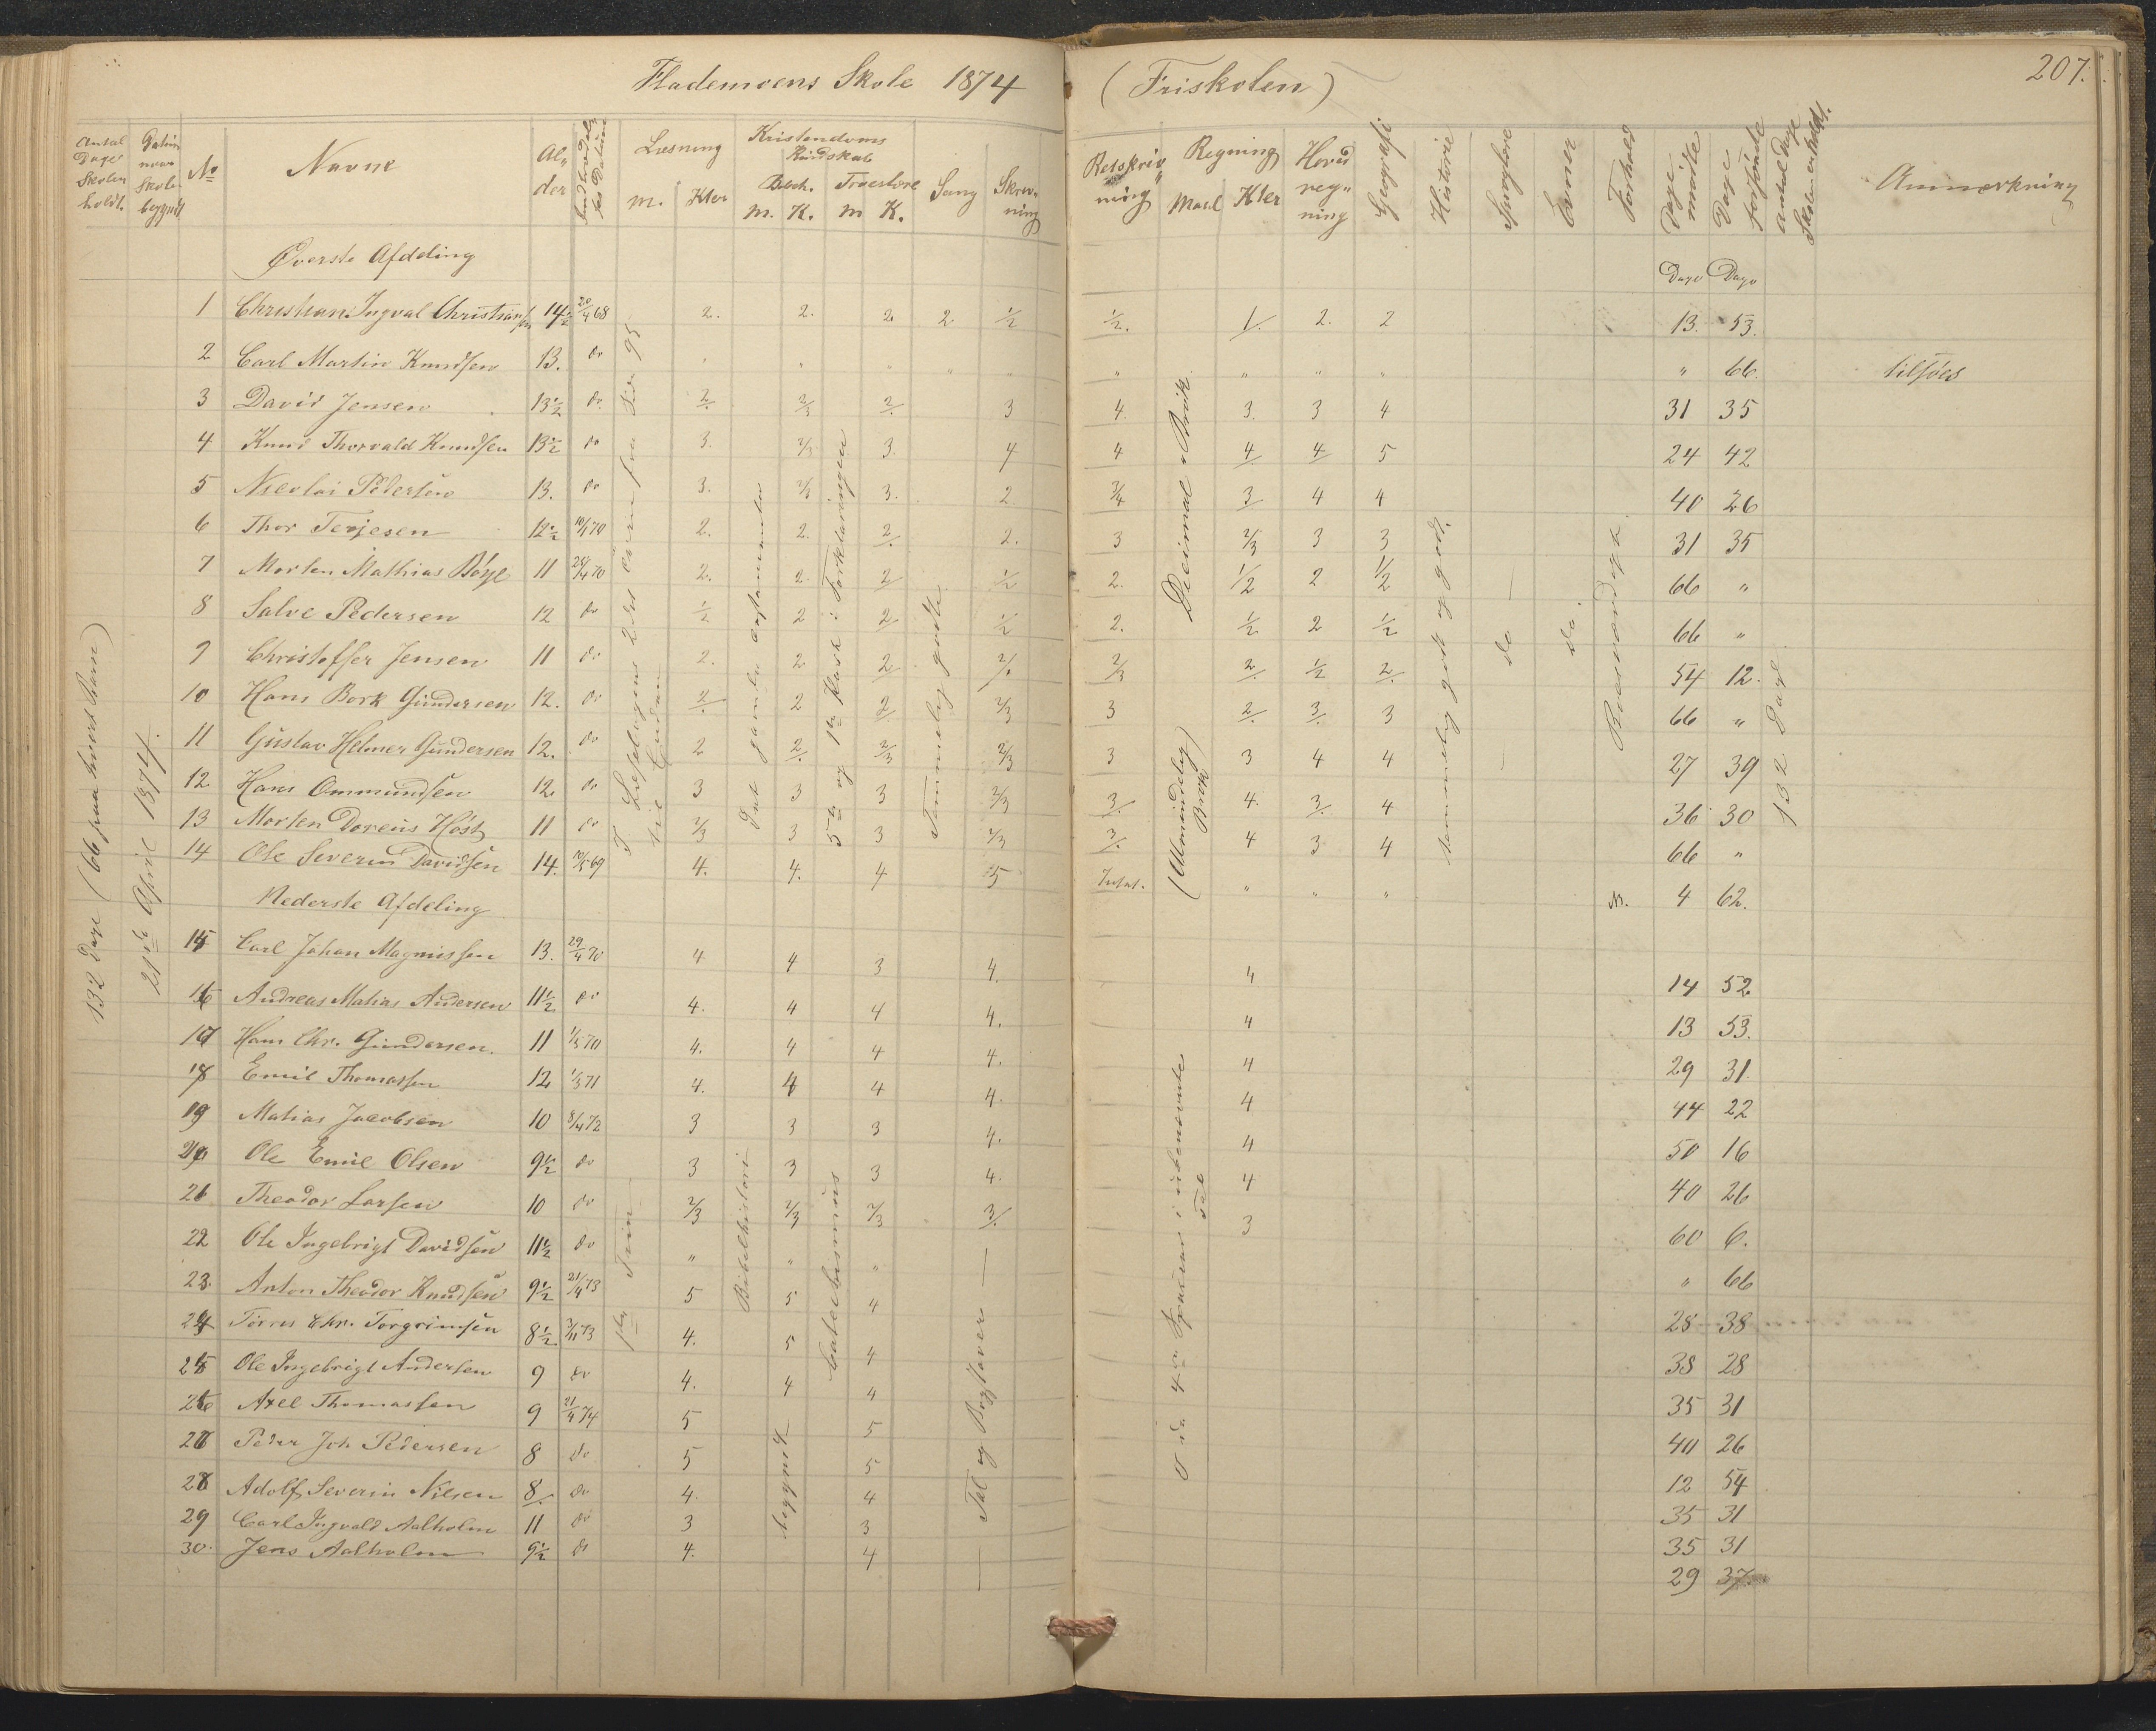 Flademoens Skole 1874 (Friskolen) 207.
Antal Dage Skolen holdt. Datum naar Skolen begyndt No Navne Alder Indtrædelses Datum Læsning m. Kter Kristendoms Kundskab Bibelh. m. K. Troeslære m K. Sang Skrivning Retskrivning Regning Maal Kter Hovedregning Geografi Historie Sproglære Evner Forhold Dage mødte Dage forsømte Antal Dage Skolen er holdt. Anmærkning
Øverste Afdeling Dage Dage
1 Christian Ingval Christiansen 14½ 20/4 68 2. 2. 2. 2. ½ ½. 1/. 2. 2 13. 53.
2 Carl Martin Knudsen 13. do " " " " " " " " " " 66. tilsøes
3 David Jensen 13½ do 2/. 2/3 2/. 3 4. 3. 3 4 31 35
4 Knud Thorvald Knudsen 13½ do 3. 2/3 3. 4 4 4/. 4/. 5 24 42
5 Nicolai Pedersen 13. do 3. 2/3 3. 2 3/4 3/. 4 4 40 26
6 Thor Terjesen 12½ 10/4 70 2. 2. 2/. 2. 3 2/3 3 3 31 35
7 Morten Mathias Bøye 11 25/4 70 2. 2. 2/. ½ 2. ½ 2 ½ 66 "
8 Salve Pedersen 12 do ½ 2 2/. ½ 2. ½ 2 ½ 66 "
9 Christoffer Jensen 11 do 2. 2 2/. 2/. 2/3 2/. ½ 2/. 54 12.
10 Hans Bork Gundersen 12. do 2/. 2 2/. 2/3 3 2/. 3/. 3 66 "
11 Gustav Helmer Gundersen 12. do 2 2/. 2/3 2/3 3 3 4 4 27 39
12 Hans Ommundsen 12. do 3 3 3 2/3 3/. 4. 3/. 4 36 30
13 Morten Doreus Høst 11 do 2/3 3 3 2/3 3/. 4 3 4 66 "
14 Ole Severin Davidsen 14. 10/5 69 4. 4. 4 5 Intet. " " " 3. 4 62.
Nederste Afdeling
15 Carl Johan Magnussen 13. 29/4 70 4 4 3 4. 4 14 52
16 Andreas Mathias Andersen 11½ do 4. 4 4 4. 4 13 53.
17 Hans Chr. Gundersen. 11 1/5 70 4. 4 4 4. 4 29 31.
18 Emil Thomassen 12 1/3 71 4. 4 4 4. 4 44 22
19 Matias Jacobsen 10 8/4 72 3 3 3 4. 4 50 16
20 Ole Emil Olsen 9½ do 3 3 3 4. 4 40 26
21 Theodor Larsen 10 do 2/3 2/3 2/3 3/. 3 60 6.
22 Ole Ingebrigt Davidsen 11½ do " " " " 66
23. Anton Theodor Knudsen 9½ 21/4 73 5 5 4 28 38
24 Tørres Chr. Torgrimsen 8½. 3/11 73 4. 5 4 38 28
25 Ole Ingebrigt Andersen 9 do 4. 4 4 35 31
26 Axel Thomassen 9 21/4 74 5 5 40 26
27 Peder Joh Pedersen 8 do 5 5 12 54
28 Adolf Severin Nilsen 8/. do 4. 4 35 31
29 Carl Ingvald Aalholm 11 do 3 3 35 31
30. Jens Aalholm 9½ do 4. 4 29 37
132 Dage (66 paa hvert Barn)
21de April 1874.
I Læsebogens 2det Trin fra Side 95 til Enden
1ste Trin
Det gamle Testamente
Bibelhistori
begyndt
5te og 1ste Part i Forklaringen
Catechismus
Temmelig godt
Tal og Bogstaver
Decimal Brøk
(Almindelig Brøk)
4 Species i ubenævnte Tal
temmelig godt og godt.
do
do
Roesværdigt.
132 Dage